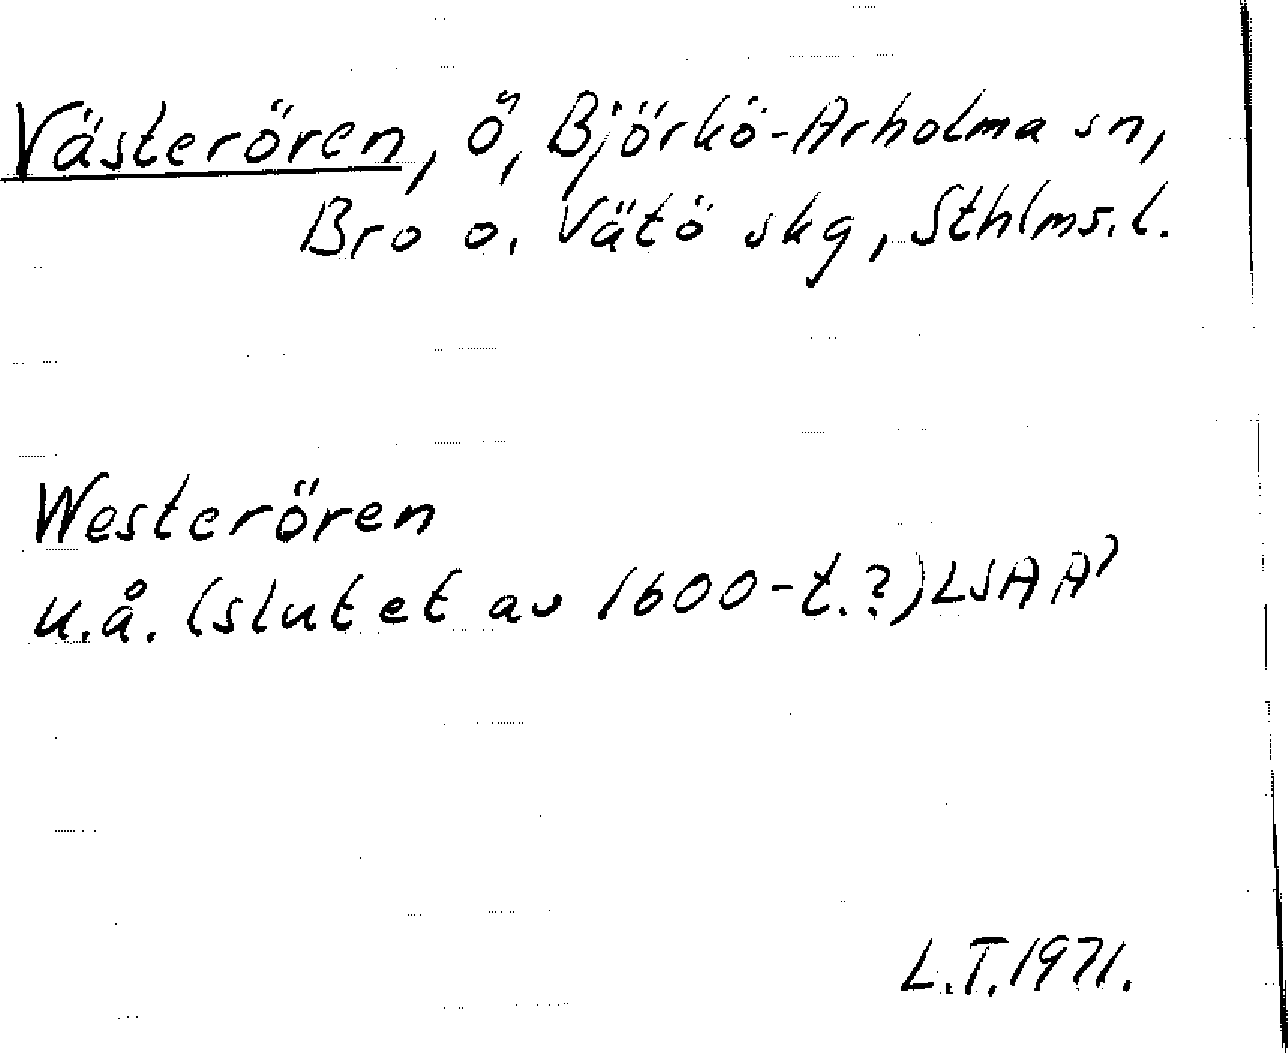 Västerören, Ö, Björkö-Arholma sn,
Bro o. Vätö skg, Sthlms. l.
Westerören
u.å. (slutet av 1600-t.?) LSAA)
L.T. 1971.